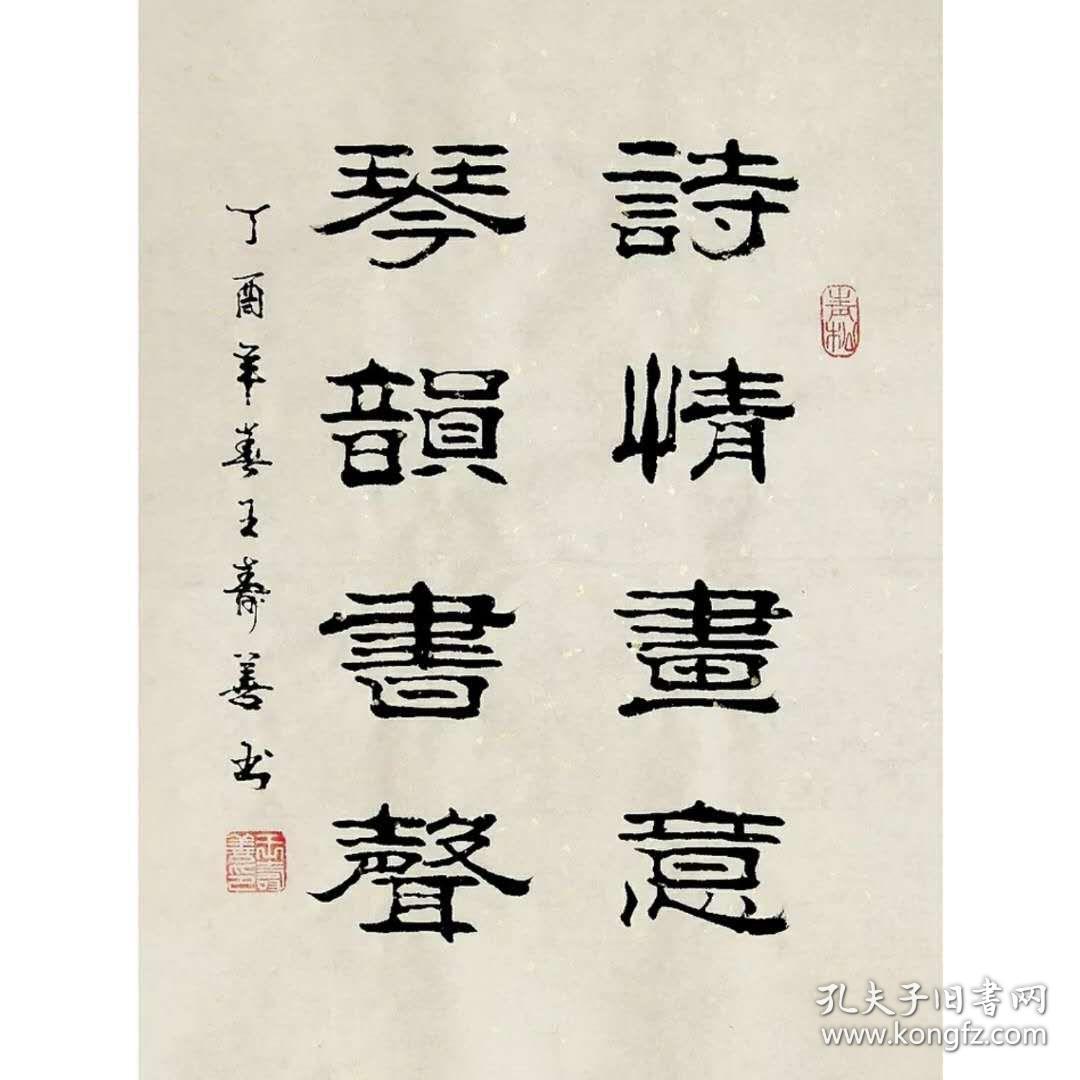 詩情畫意
琴韻書聲
丁酉年春王壽善书
青松
王壽善印
孔夫子旧书网
www.kongfz.com